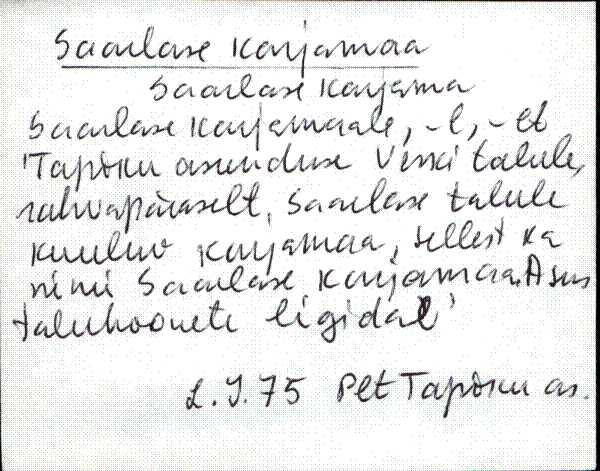 Saarlase karjamaa
Saarlase karjama
Saarlase karjamaale, -l, -et
'Tapiku asunduse Vinni talule,
rahvapäraselt, Saarlase talule
kuuluv karjamaa, sellest ka
nimi Saarlase karjamaa. Asus
taluhoonete ligidal'
L.J.75 Plt Tapiku as.